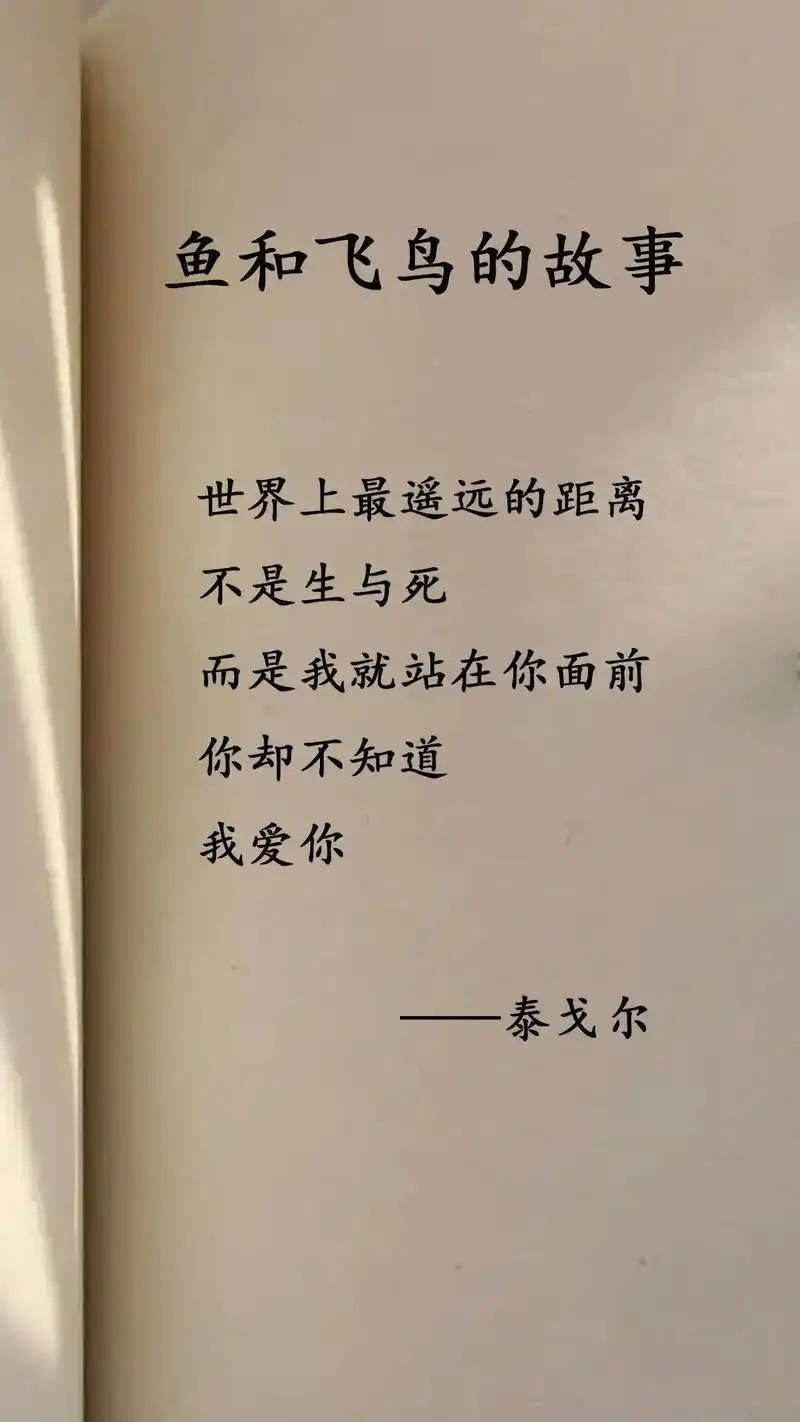 鱼和飞鸟的故事
世界上最遥远的距离
不是生与死
而是我就站在你面前
你却不知道
我爱你
——泰戈尔